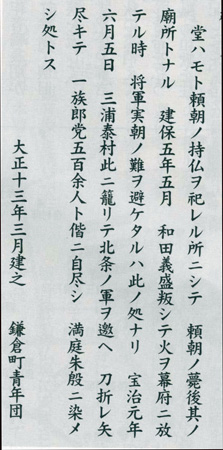 堂ハモト頼朝ノ持仏ヲ祀レル所ニシテ　頼朝ノ薨後其ノ
廟所トナル　建保五年五月　和田義盛叛シテ火ヲ幕府ニ放
テル時　将軍実朝ノ難ヲ避ケタルハ此ノ処ナリ　宝治元年
六月五日　三浦泰村此ニ籠リテ北条ノ軍ヲ邀ヘ　刀折レ矢
尽キテ　一族郎党五百余人ト偕ニ自尽シ　満庭朱殷ニ染メ
シ処トス
大正十三年三月建之　鎌倉町青年団